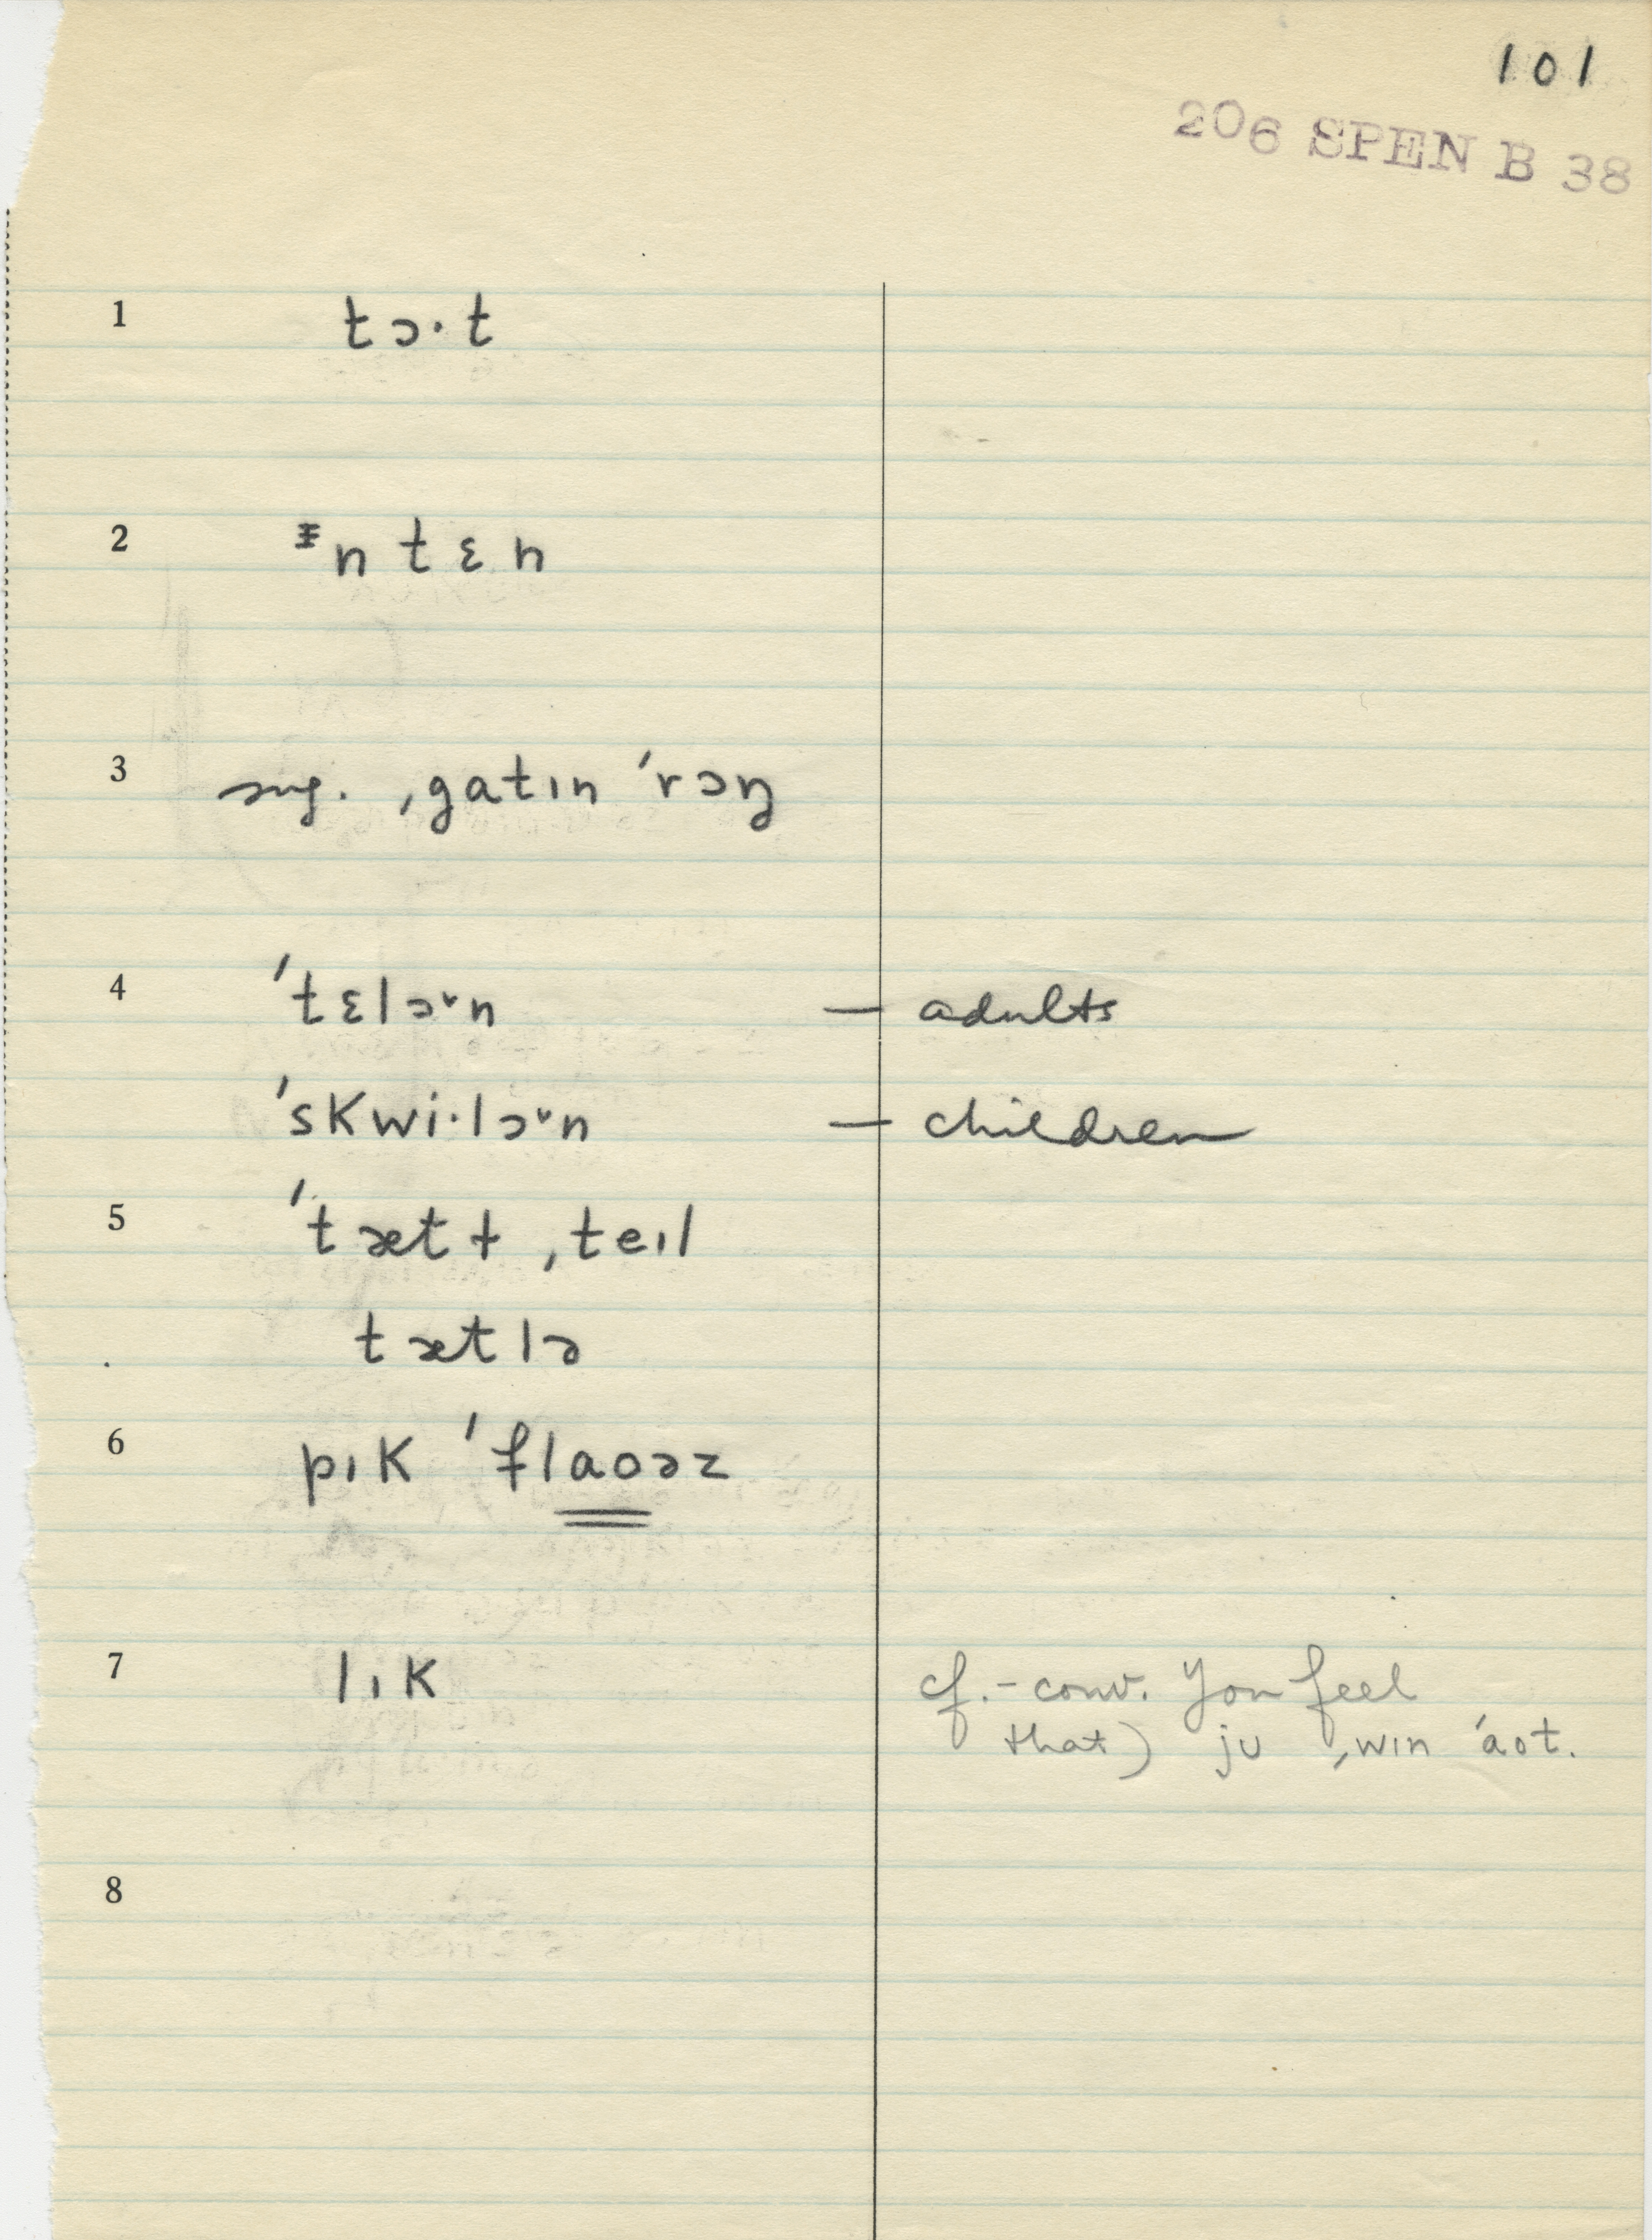 101
206 SPEN B 38
1 tɔ·t
2 ᵻn tɛn
3 sug. ˌgatɪn ˈrɔŋ
4 ˈtɛlɔ˞n — adults
ˈskwi·lɔ˞n — children
5 ˈtætɫ ˌteɪl
tætlə
6 pɪk ˈflaoəz
7 lɪk cf. - conv. You feel
that) jʊ ˌwɪn ˈaot.
8